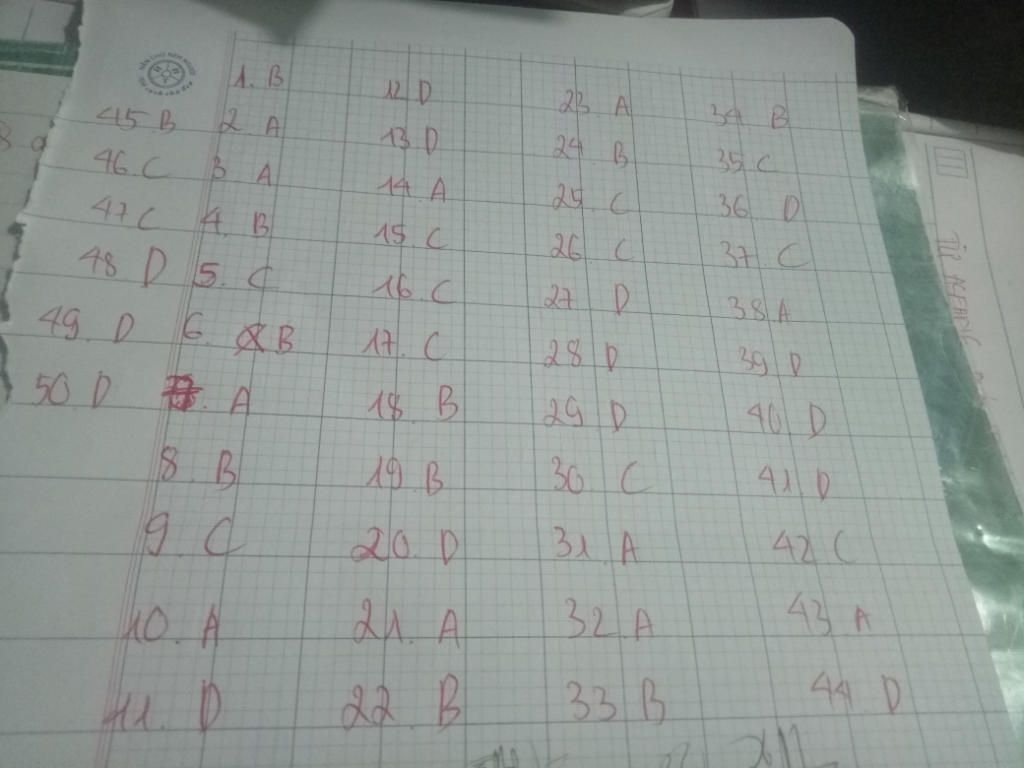 1. B
2 A
3 A
4. B
5. C
6. B
A
8 B
9. C
10. A
11. D
12 D
13 D
14 A
15. C
16 C
17. C
18 B
19 B
20. D
21. A
22 B
23 A
24 B
25 C
26 C
27 D
28 D
29 D
30 C
31 A
32 A
33 B
34 B
35 C
36 D
37 C
38 A
39 D
40 D
41 D
42 C
43 A
44 D
45 B
46 C
47 C
48 D
49. D
50 D